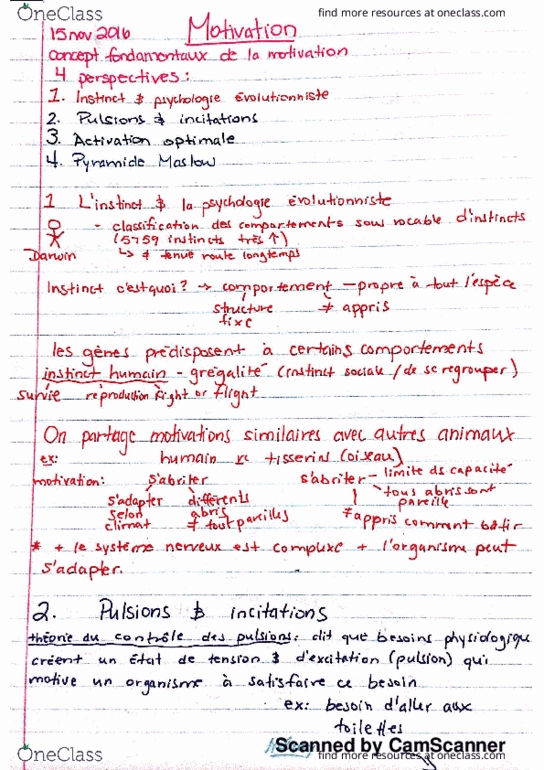 OneClass
find more resources at oneclass.com
15 nov 2016 Motivation
concept fondamentaux de la motivation
4 perspectives:
1. Instinct & psychologie évolutionniste
2. Pulsions & incitations
3. Activation optimale
4. Pyramide Maslow
1 L'instinct & la psychologie évolutionniste
- classification des comportements sous vocable d'instincts
(5759 instincts très ↑)
Darwin ↳ ≠ tenue route longtemps
Instinct c'est quoi? → comportement - propre à tout l'espèce
structure ≠ appris
fixe
les gènes prédisposent à certains comportements
instinct humain - grégalité (instinct sociale / de se regrouper)
survie reproduction fight or flight
On partage motivations similaires avec autres animaux
ex: humain vs tisserins (oiseau)
motivation: s'abriter s'abriter - limite ds capacité
s'adapter différents tous abris sont
selon abris pareille
climat ≠ tout pareilles ≠ appris comment bâtir
* + le système nerveux est complexe + l'organisme peut
s'adapter.
2. Pulsions & incitations
théorie du contrôle des pulsions: dit que besoins physiologique
créent un état de tension & d'excitation (pulsion) qui
motive un organisme à satisfaire ce besoin
ex: besoin d'aller aux
toilettes
Scanned by CamScanner
OneClass
find more resources at oneclass.com